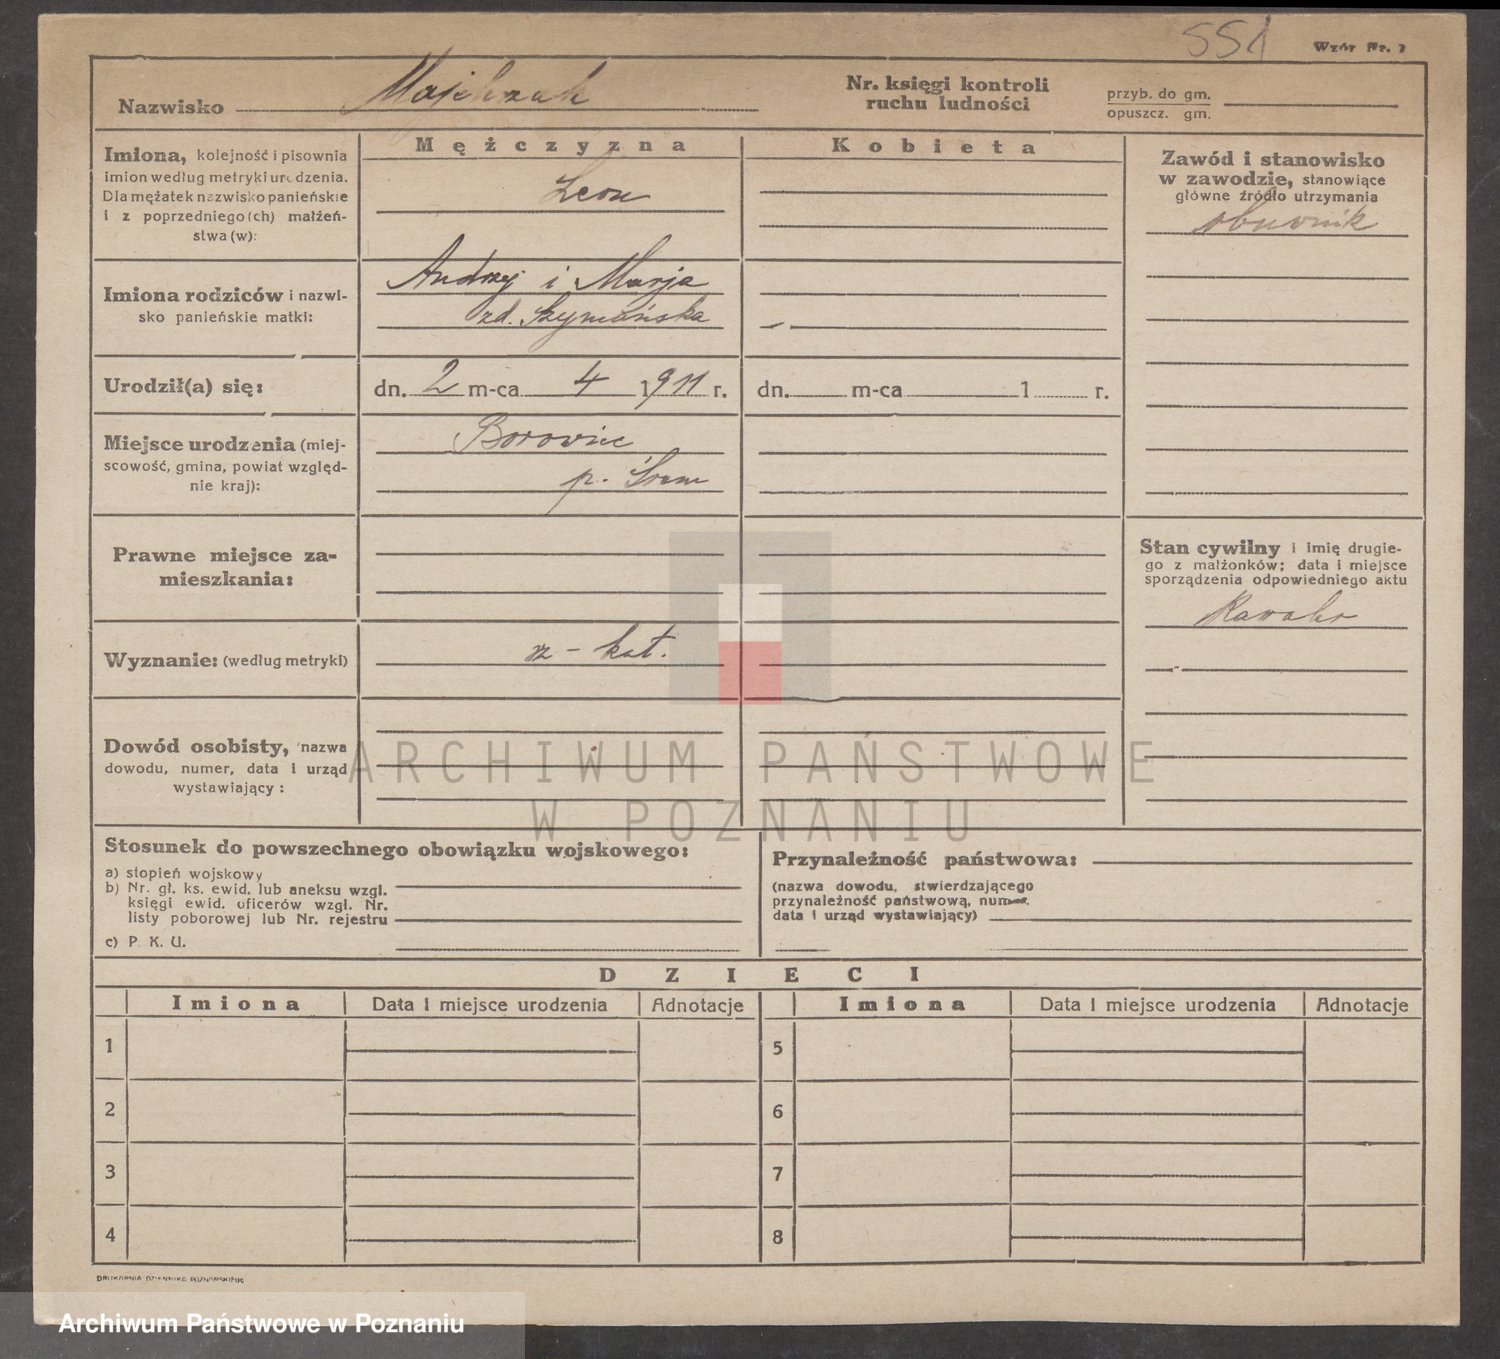 551
Wzór Nr. 7
Nazwisko Majchrzak
Nr. księgi kontroli
ruchu ludności
przyb. do gm.
opuszcz. gm.
Imiona, kolejność i pisownia
imion według metryki urodzenia.
Dla mężatek nazwisko panieńskie
i z poprzedniego(ch) małżeń-
stwa(w):
Mężczyzna
Leon
Kobieta
Zawód i stanowisko
w zawodzie, stanowiące
główne źródło utrzymania
obuwnik
Imiona rodziców i nazwi-
sko panieńskie matki:
Andrzej i Marja
zd. Szymańska
Urodził(a) się:
dn. 2 m-ca 4 1911 r.
dn. m-ca 1 r.
Miejsce urodzenia (miej-
scowość, gmina, powiat względ-
nie kraj):
Borowiec
p. Śrem
Prawne miejsce za-
mieszkania:
Stan cywilny i imię drugie-
go z małżonków; data i miejsce
sporządzenia odpowiedniego aktu
Kawaler
Wyznanie: (według metryki)
rz-kat.
Dowód osobisty, nazwa
dowodu, numer, data i urząd
wystawiający:
ARCHIWUM PAŃSTWOWE
W POZNANIU
Stosunek do powszechnego obowiązku wojskowego:
a) stopień wojskowy
b) Nr. gł. ks. ewid. lub aneksu wzgl.
księgi ewid. oficerów wzgl. Nr.
listy poborowej lub Nr. rejestru
c) P. K. U.
Przynależność państwowa:
(nazwa dowodu, stwierdzającego
przynależność państwową, numer
data i urząd wystawiający)
DZIECI
Imiona Data i miejsce urodzenia Adnotacje Imiona Data i miejsce urodzenia Adnotacje
1 5
2 6
3 7
4 8
DRUKARNIA DZIENNIKA POZNAŃSKIEGO
Archiwum Państwowe w Poznaniu